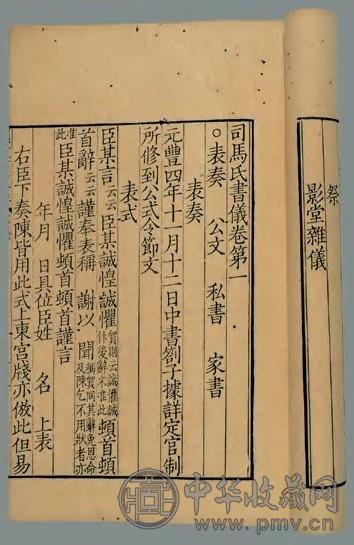 祭
影堂雜儀
司馬氏書儀卷第一
○表奏 公文 私書 家書
表奏
元豐四年十一月十二日中書劄子據詳定官制
所修到公式令節文
表式
臣某言臣某誠惶誠懼賀則云誠懽誠忭後辭末准此頓首頓
首辭云云謹奉表稱 謝以 聞稱賀同其辭免恩命及陳乞不用狀者亦
准此臣某誠惶誠懼頓首頓首謹言
年月 日具位臣姓 名 上表
右臣下奏陳皆用此式上東宮牋亦倣此但易
中华收藏网
www.pmv.cn